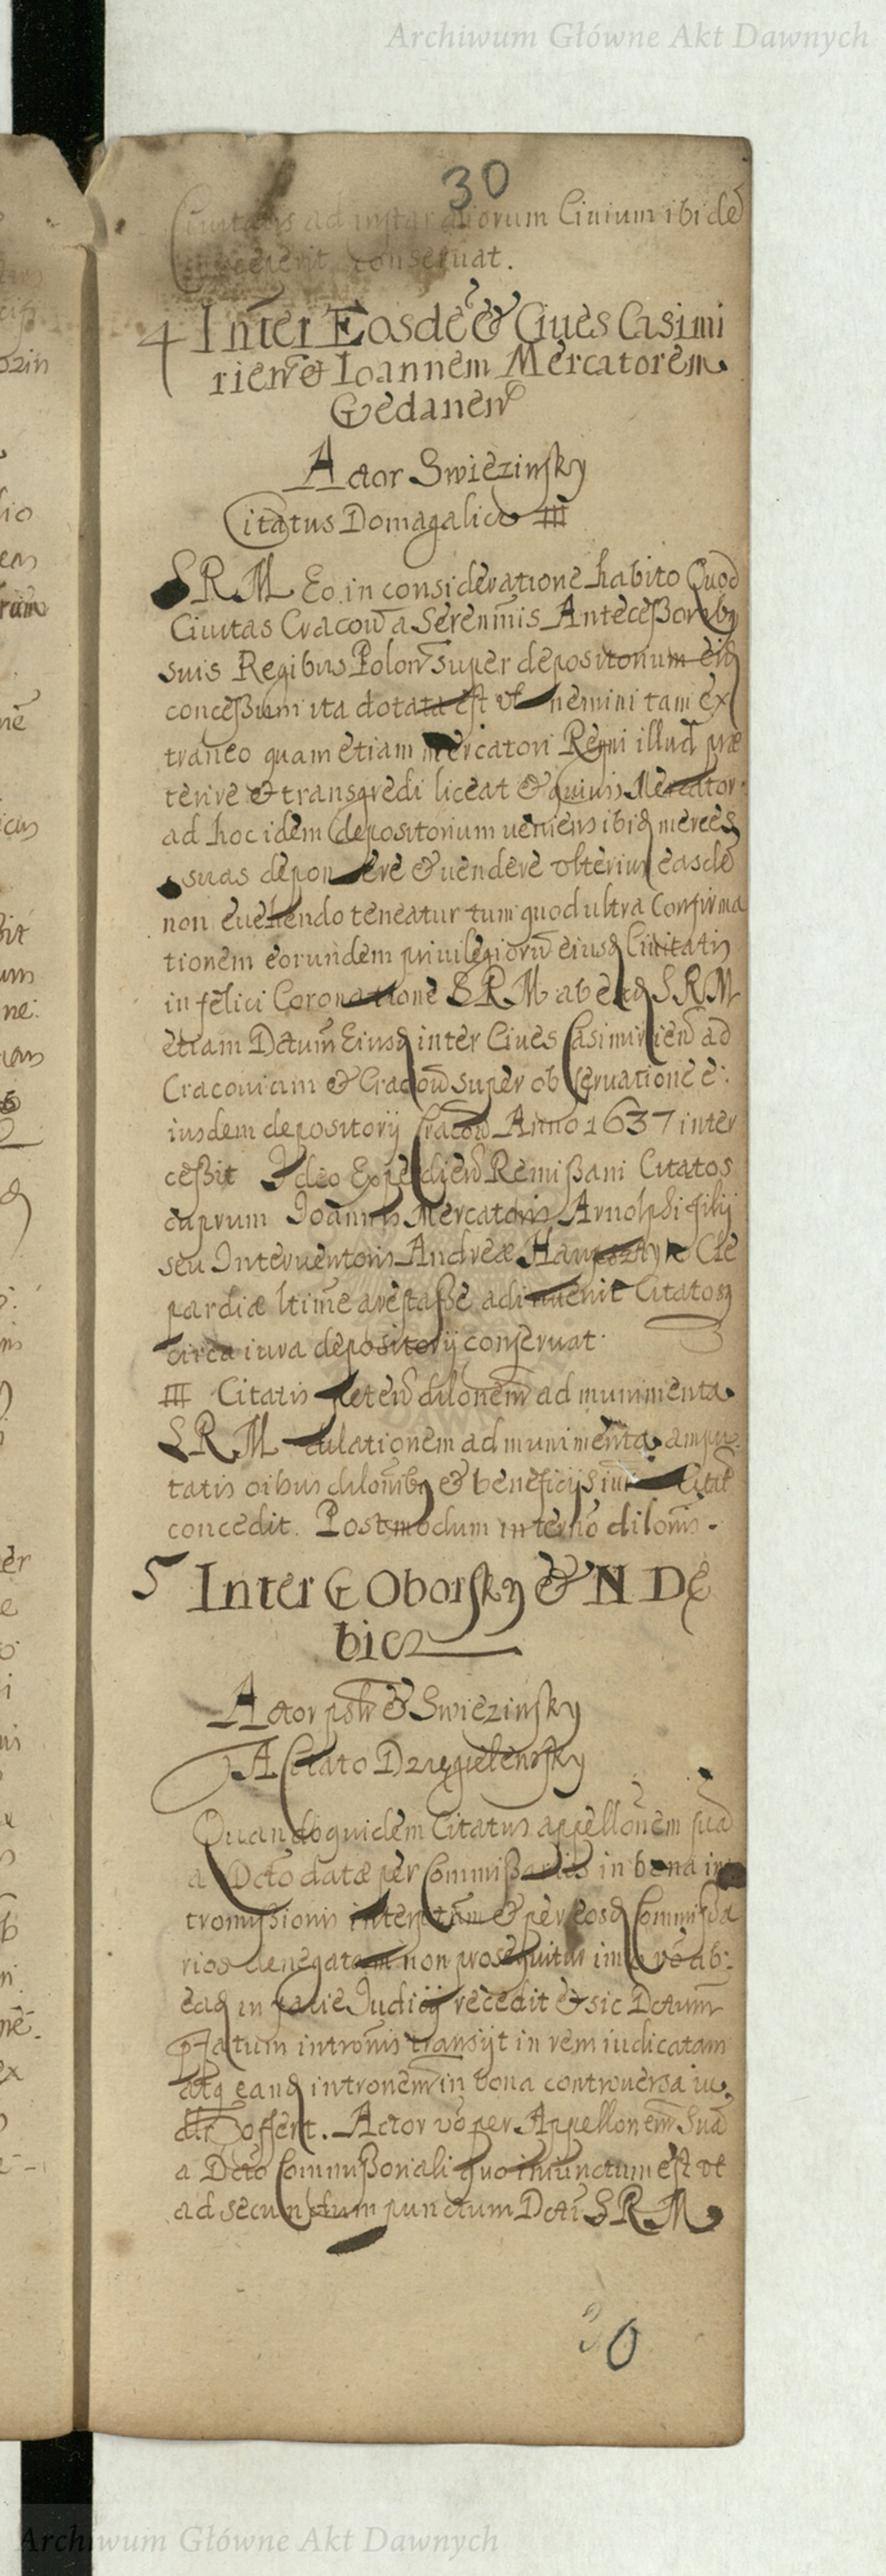 Archiwum Główne Akt Dawnych
30
Civitatis ad instar aliorum Civium ibidē
conservat.
4 Inter Eosdē & Cives Casimi
rien̄ & Ioannem Mercatorem
Gedanen̄
Actor Swiezinsky
Citatus Domagalicz III
S R M Eo in consideratione habito Quod
Civitas Cracov̄ a Seren̄mis Anteceßorib9
suis Regibus Polon̄ super depositorium eid
conceßum ita dotata est vt nemini tam ex
traneo quam etiam mercatori Regni illud præ
terire & transgredi liceat & quivis Mercator
ad hoc idem depositorium veniens ibid merces
suas deponere & vendere vlterius easdē
non evehendo teneatur tum quod ultra Confirma
tionem eorundem privilegiorū eiusd Civitatis
in felici Coronatione S R M ab ead S R M
etiam Dctum Eiusd inter Cives Casimirien̄ ad
Cracoviam & Cracov̄ super observatione e:
iusdem depositorij Cracov̄ Anno 1637 inter
ceßit Ideo Expedien̄ Remißani Citatos
cuprum Joannis Mercatoris Arnolphi filij
seu Interventoris Andreæ Cle
pardiæ ltime arestaße adinvenit Citatosq
circa iura depositorij conservat
III Citatis peten̄ dilonem ad munimenta
S R M dilationem ad munimenta ampu
tatis oibus dilonib9 & beneficijs iuris Citat
concedit. Postmodum in termo dilonis.
5 Inter G Oborsky & N Dę
bicz
Actor pstr & Swiezinsky
A Citato Dzięgielewsky
Quandoquidem Citatus appellonem suā
a Dcto datæ per Commißarios in bona in
tromißionis interpositam & per eosd Commißa
rios denegatam non prosequitur imo vo ab:
ead in facie Judicij recedit & sic Dctum
pfatum intromis transijt in rem iudicatam
atq eand intronem in bona controversa iu
offert. Actor vo per Appellonem Suā
a Dcto Commißoriali quo iniunctum est vt
ad secundum punctum Dcti S R M
30
Archiwum Główne Akt Dawnych